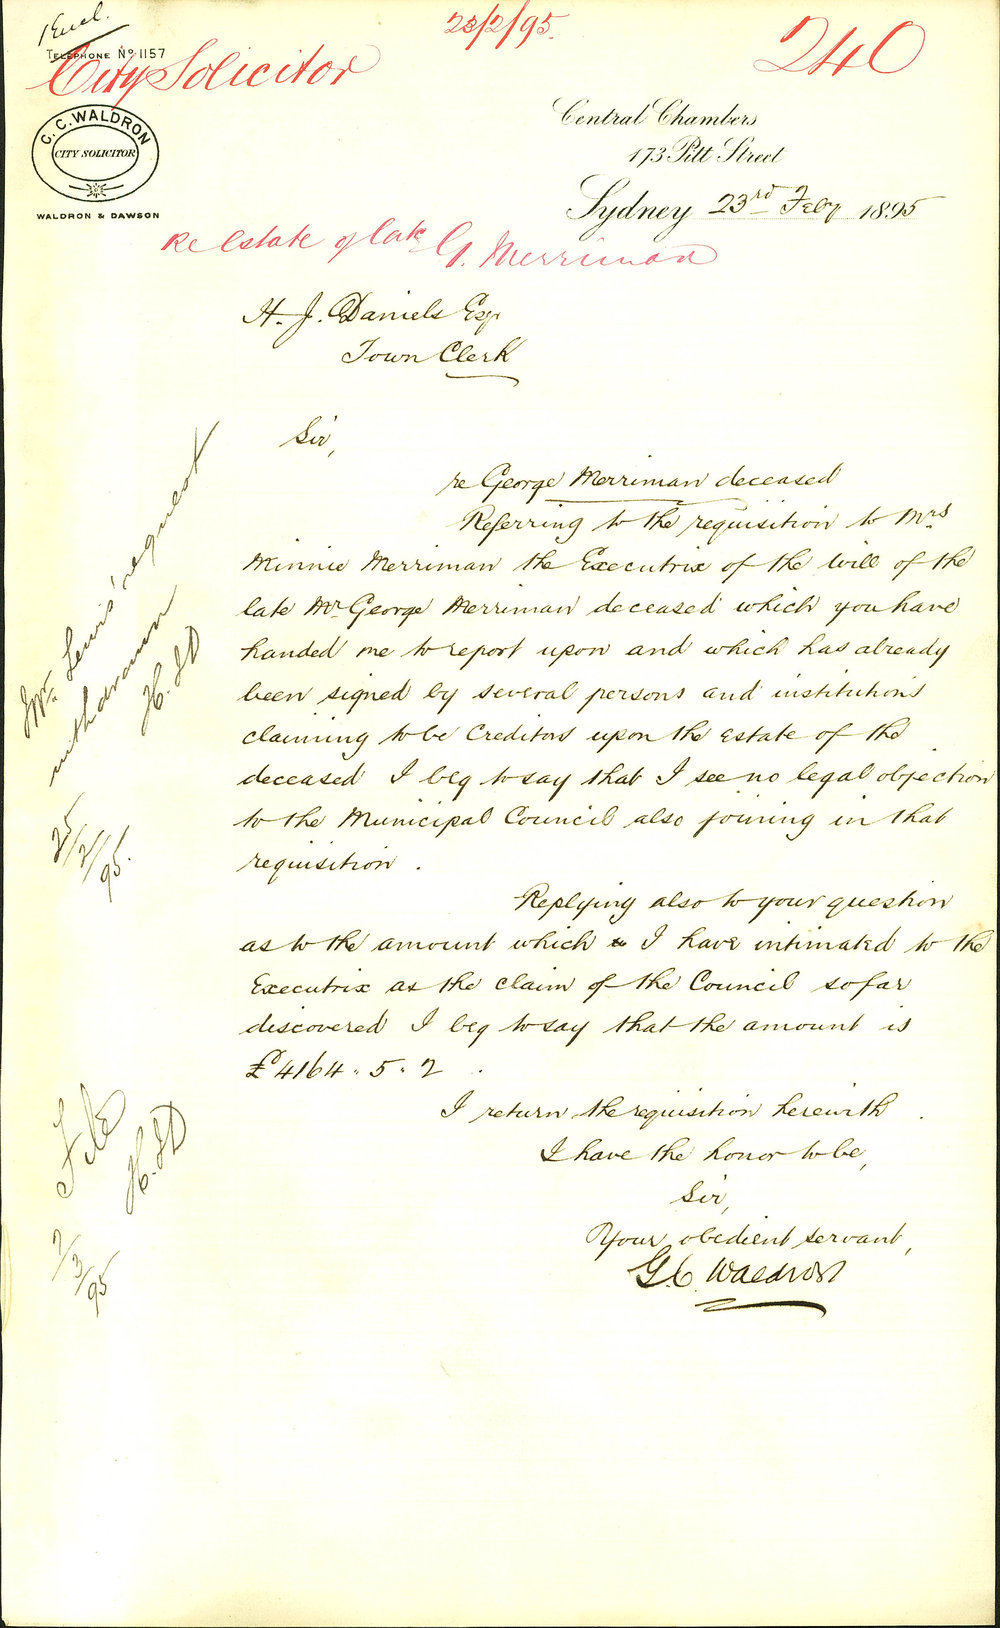 1 Encl.
23/2/95.
240
TELEPHONE No 1157
City Solicitor
C. C. WALDRON
CITY SOLICITOR
WALDRON & DAWSON
Central Chambers
173 Pitt Street
Sydney 23rd Feby 1895
Re Estate of late G. Merriman
H. J. Daniels Esqr
Town Clerk
Sir,
re George Merriman deceased
Referring to the requisition to Mrs
Minnie Merriman the Executrix of the will of the
late Mr George Merriman deceased which you have
handed me to report upon and which has already
been signed by several persons and institutions
claiming to be Creditors upon the Estate of the
deceased I beg to say that I see no legal objection
to the Municipal Council also joining in that
requisition.
Replying also to your question
as to the amount which I have intimated to the
Executrix as the claim of the Council so far
discovered I beg to say that the amount is
£4164. 5. 2.
I return the requisition herewith.
I have the honor to be,
Sir,
Your obedient servant,
G. C. Waldron
Mr. Lewis' request
withdrawn
H. J D
25/2/95.
File
H. J D
7/3/95